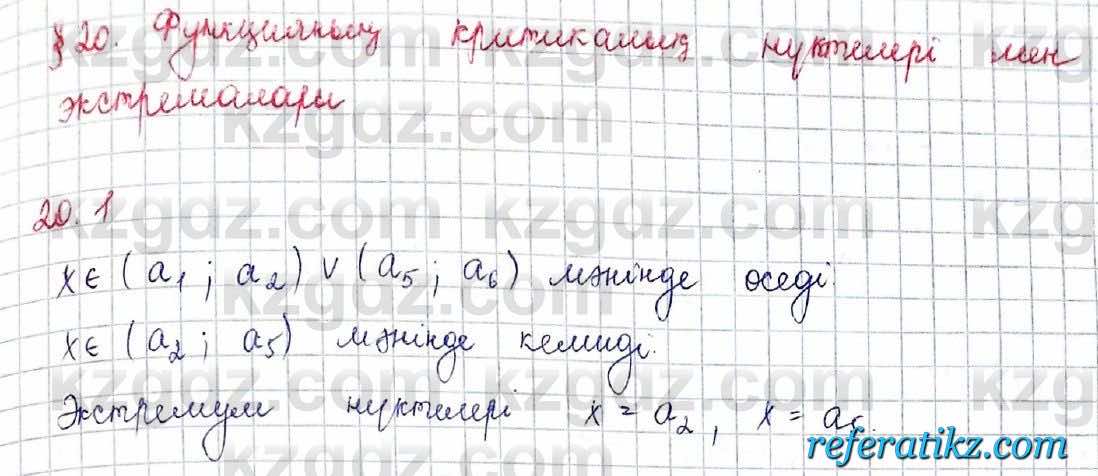 § 20. Функцияның критикалық нүктелері мен
экстремалары
20.1
x ∈ (a₁; a₂) ∨ (a₅; a₆) мәнінде өседі.
x ∈ (a₂; a₅) мәнінде кемиді.
Экстремум нүктелері x = a₂, x = a₅.
kzgdz.com
referatikz.com